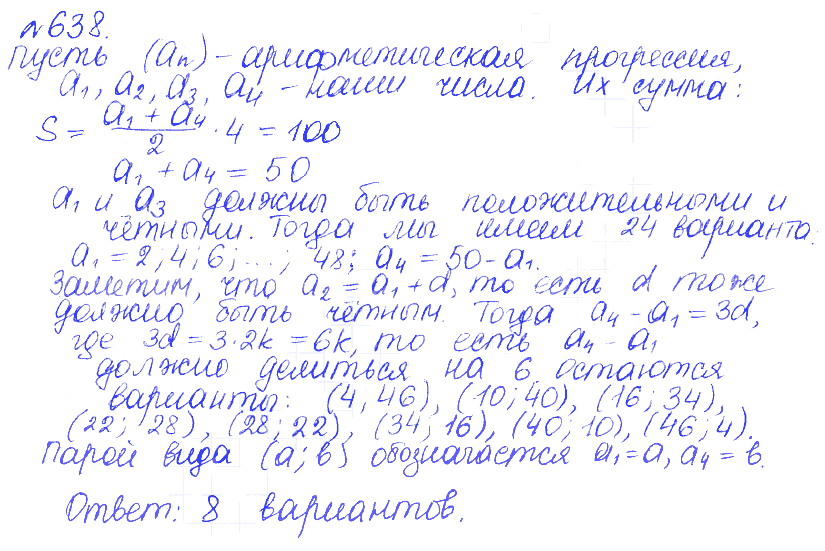 №638.
Пусть (an) - арифметическая прогрессия,
a1, a2, a3, a4 - наши числа. Их сумма:
S = (a1 + a4)/2 · 4 = 100
a1 + a4 = 50
a1 и a3 должны быть положительными и
чётными. Тогда мы имеем 24 варианта:
a1 = 2; 4; 6; ...; 48; a4 = 50 - a1.
Заметим, что a2 = a1 + d, то есть d тоже
должно быть чётным. Тогда a4 - a1 = 3d,
где 3d = 3·2k = 6k, то есть a4 - a1
должно делиться на 6 остаются
варианты: (4; 46), (10; 40), (16; 34),
(22; 28), (28; 22), (34; 16), (40; 10), (46; 4).
Парой вида (a; b) обозначается a1 = a, a4 = b.
Ответ: 8 вариантов.